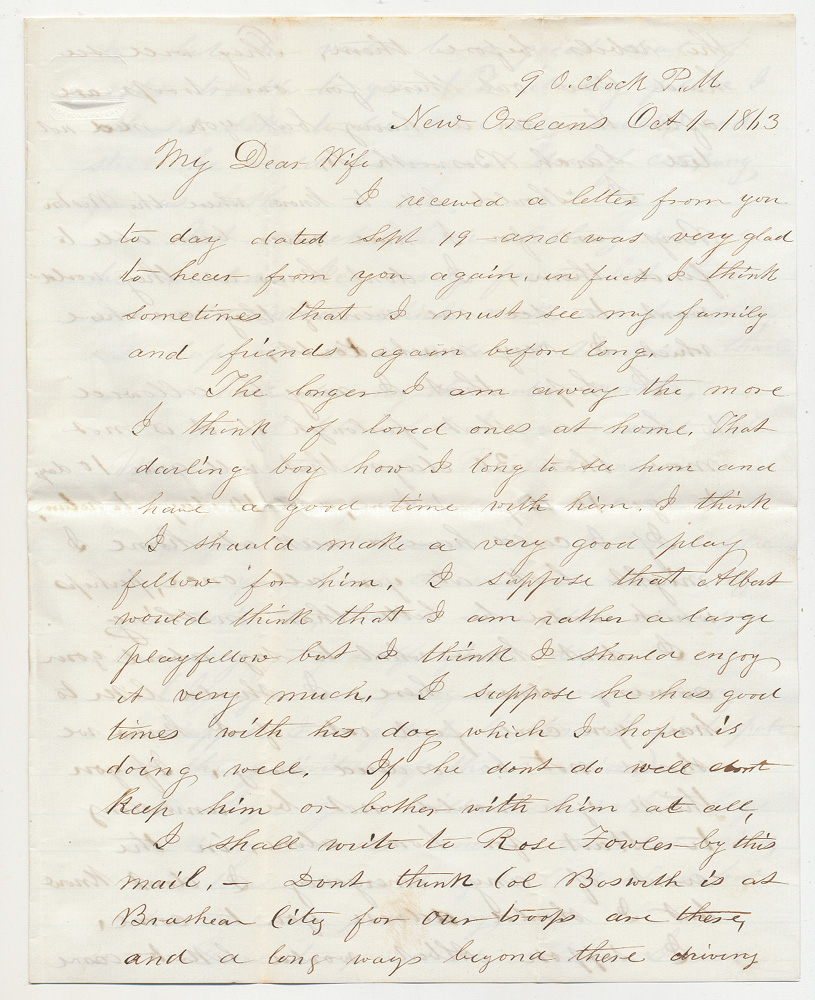 9 O.clock P.M.
New Orleans Oct 1 - 1863
My Dear Wife
I received a letter from you
to day dated Sept 19 - and was very glad
to hear from you again. in fact I think
sometimes that I must see my family
and friends again before long.
The longer I am away the more
I think of loved ones at home. That
darling boy how I long to see him and
have a good time with him. I think
I should make a very good play
fellow for him. I suppose that Albert
would think that I am rather a large
playfellow but I think I should enjoy
it very much. I suppose he has good
times with his dog which I hope is
doing well. If he dont do well dont
keep him or bother with him at all,
I shall write to Rose Fowler by this
mail. - Dont think Col Boswith is at
Brashear City for our troops are there,
and a long ways beyond there driving